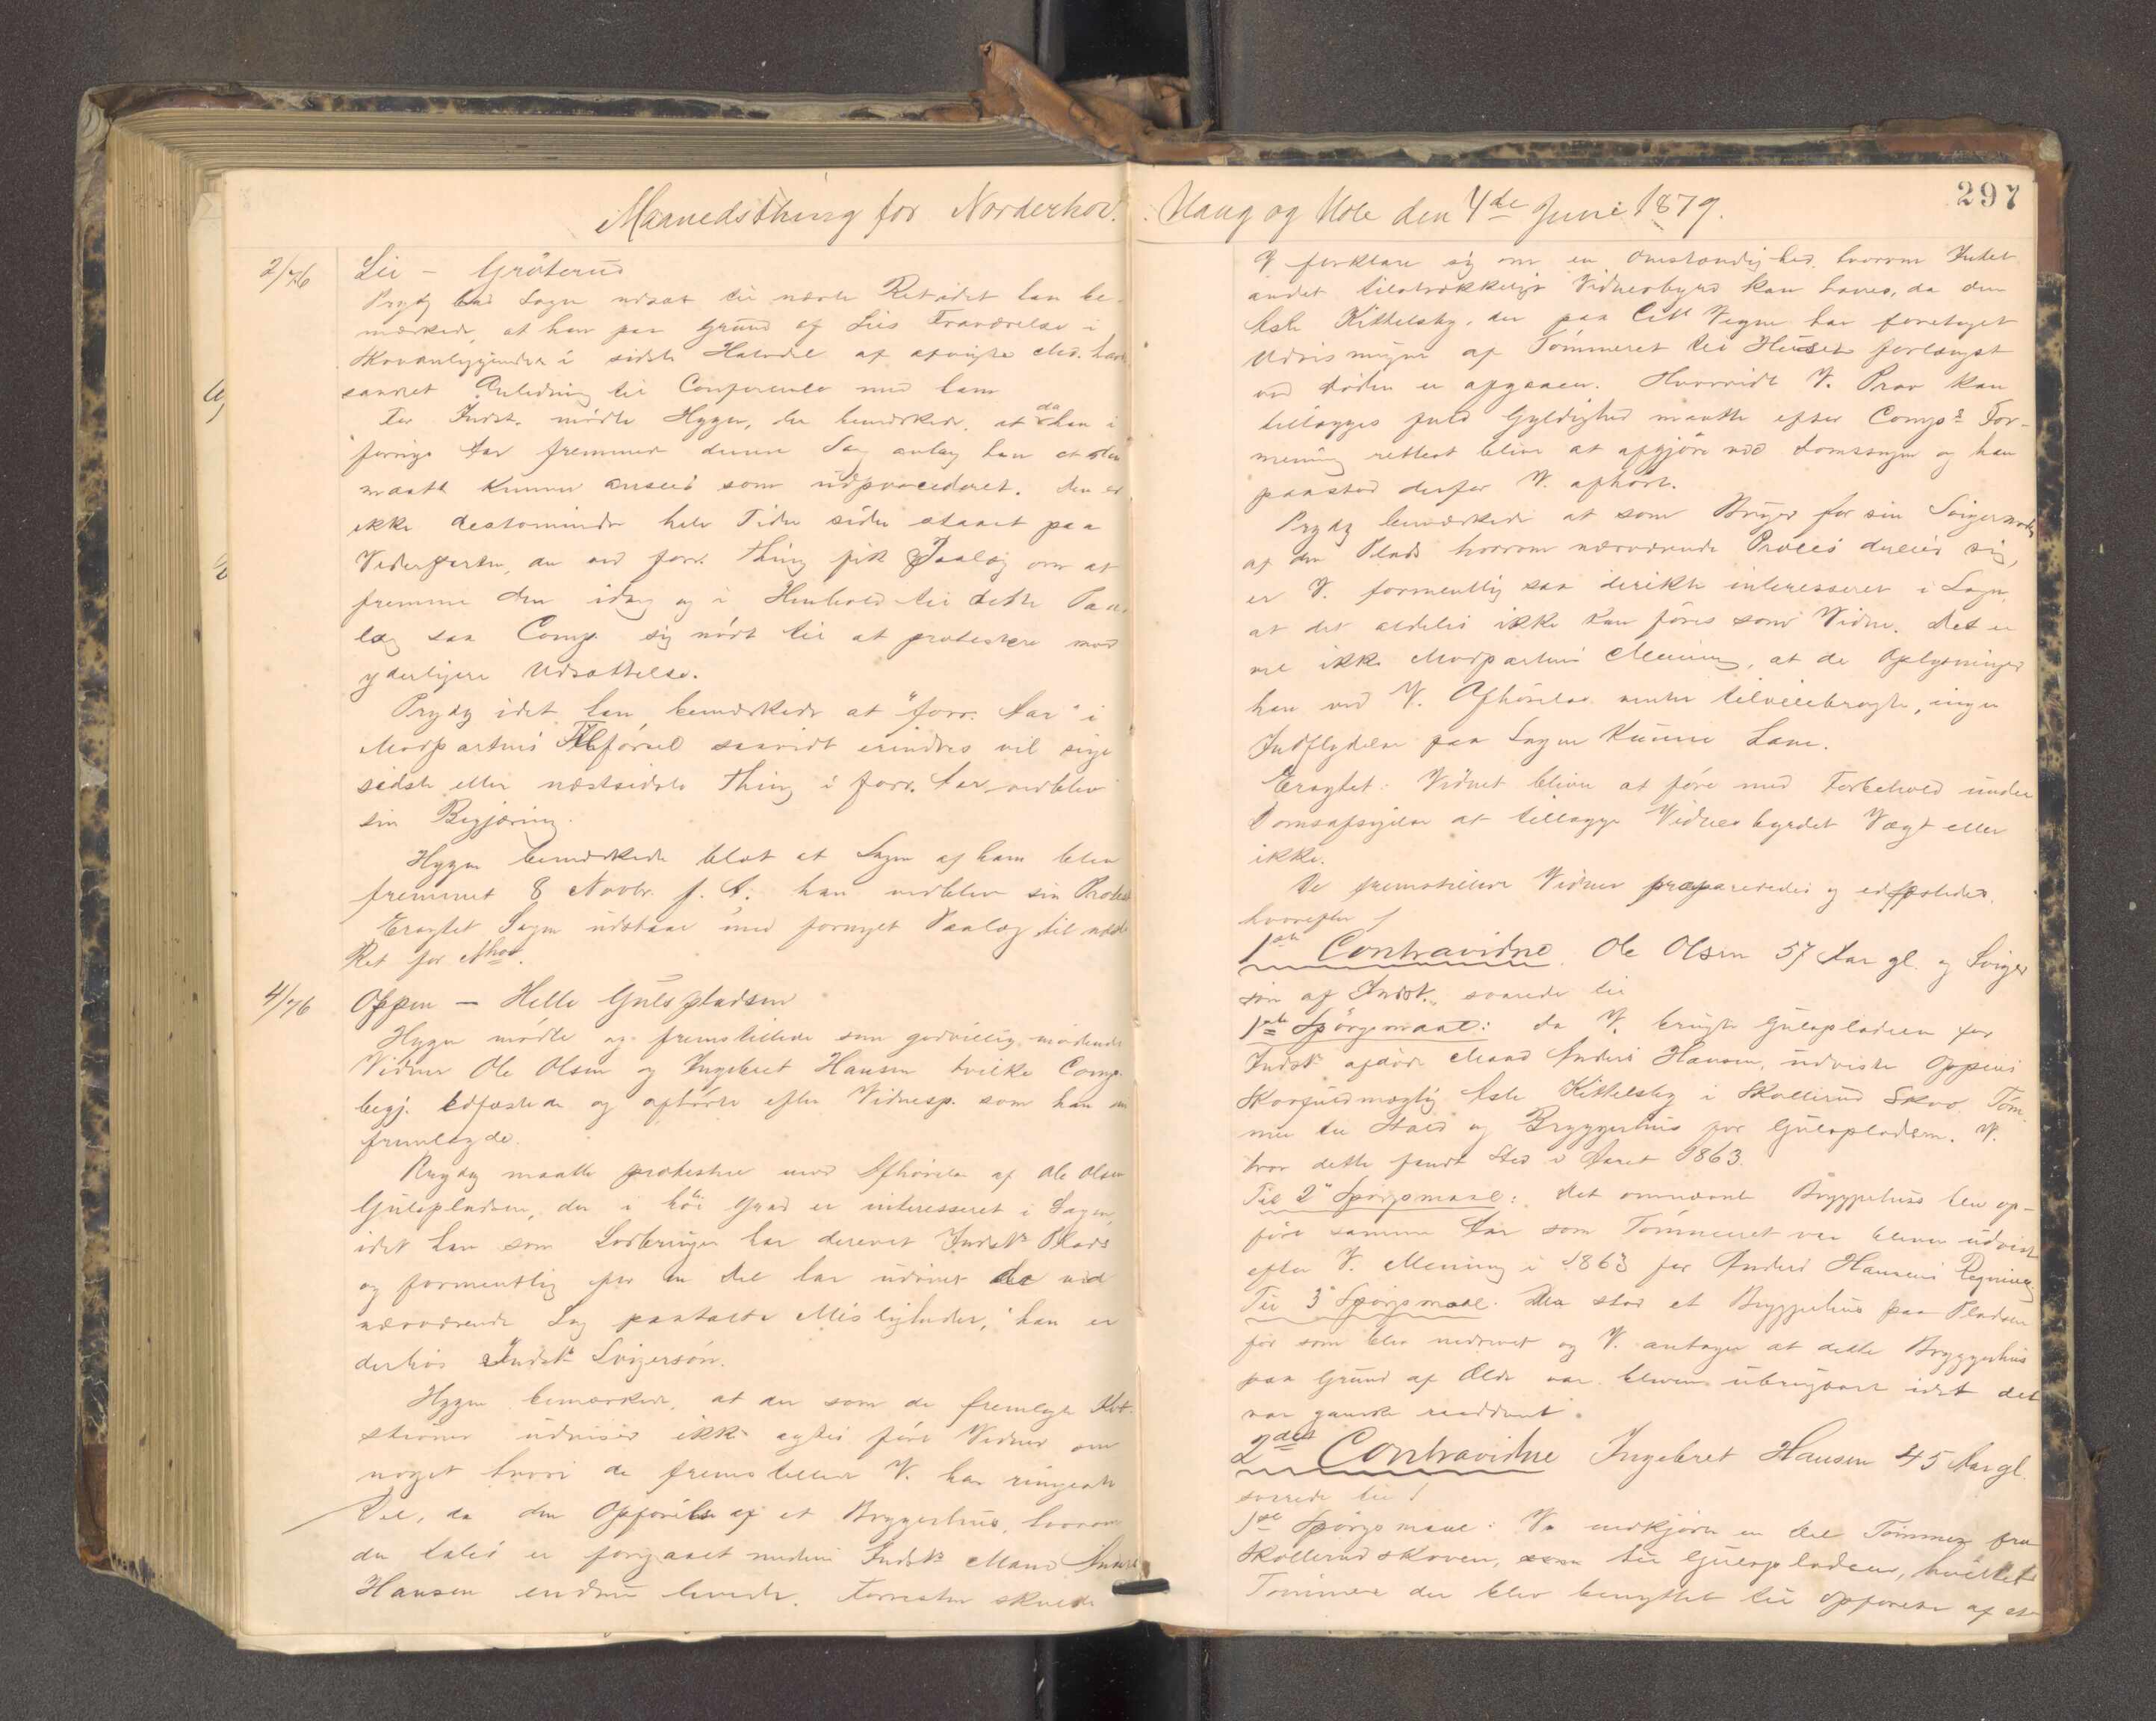 Maanedsthing for Norderhov. Haug og Hole den 4de Juni 1879.
297
2/76
Lie – Gröterud
Prydz bad Sagen udsat til næste Ret idet han be-
mærkede, at han paa Grund af Lies Fraværelse i
Skovanliggender i sidste Halvdel af afvigte Md. har
savnet Anledning til Conference med ham
For Indst. mödte Hygen, der bemærkede, at da han i
forrige Aar fremmede denne Sag antog han at den
maatte kunne ansees som udproceederet. Den er
ikke destomindre hele Tiden siden staaet paa
Vederparten, der ved forr. Thing fik Paalæg om at
fremme den idag og i Henhold til dette Paa-
læg saa Comp. sig nödt til at protestere mod
yderligere Udsættelse.
Prydz idet han bemærkede at "forr. Aar" i
Modpartens Tilförsel saavidt erindres vil sige
sidste eller næstsidste Thing i forr. Aar vedblev
sin Begjæring.
Hygen bemærkede blot at Sagen af ham blev
fremmet 8 Novbr. f. A. han vedblev sin Protest
Eragtet Sagen udstaar med fornyet Paalæg til næste
Ret for Nhov.
4/76
Oppen – Helle Gulspladsen
Hygen mödte og fremstillede som godvillig mödende
Vidner Ole Olsen og Ingebret Hansen hvilke Comp.
begj. edfæstede og afhörte efter Vidnesp. som han
fremlagde.
Prydz maatte protestere mod Afhörelse af Ole Olsen
Gulspladsen, der i höi Grad er interesseret i Sagen,
idet han som Lodbruger har drevet Indst's Plads
og formentlig for en Del har udövet de ved
nærværende Sag paatalte Misligheder, han er
derhos Indst's Svigersön.
Hygen bemærkede, at der som de fremlagte Kve-
stioner udviser ikke agtes fört Vidner om
noget hvori de fremstillede V. har ringeste
Del, da den Opförelse af et Bryggerhus, hvorom
der tales er foregaaet medens Indst's Mand Anders
Hansen endnu levede. Forresten skulde
V. forklare sig om en Omstændighed, hvorom Intet
andet tilstrækkeligt Vidnesbyrd kan haves, da den
Asle Kittelsby, der paa Cit's Vegne har foretaget
Udvisningen af Tömmeret til Huset forlængst
ved Döden er afgaaen. Hvorvidt V. Prov kan
tillægges fuld Gyldighed maatte efter Comp's For-
mening rettest blive at afgjöre ved Domssagen og han
paastod derfor V. afhört.
Prydz bemærkede at som Bruger for sin Svigermoder
af den Plads hvorom nærværende Proces dreier sig,
er V. formentlig saa direkte interesseret i Sagen,
at det aldeles ikke kan föres som Vidne. Det er
vel ikke Modpartens Mening, at de Oplysninger
han ved V. Afhörelse venter tilveiebragte, ingen
Indflydelse paa Sagen kunne have.
Eragtet: Vidnet bliver at före med Forbehold under
Domsafsigelse at tillægge Vidnesbyrdet Vægt eller
ikke.
De fremstillede Vidner præparededes og edfæstedes,
hvorefter
1ste Contravidne Ole Olsen 57 Aar gl. og Sviger
sön af Indst., svarede til
1ste Spörgsmaal: Da V. brugte Gulspladsen for
Indst's afdöde Mand Anders Hansen, udviste Oppens
Skovfuldmægtig Asle Kittelsby i Skollerud Skov Töm
mer til Stald og Bryggerhus for Gulspladsen. V.
tror dette fandt Sted i Aaret 1863.
Til 2' Spörgsmaal: Det omnævnte Bryggerhus blev op-
fört samme Aar som Tömmeret var bleven udvist
efter V. Mening i 1863 for Anders Hansens Regning.
Til 3' Spörgsmaal. Der stod et Bryggerhus paa Pladsen
för som blev nedrevet og V. antager at dette Bryggerhus
paa Grund af Ælde var bleven ubrugbart idet det
var ganske raaddent.
2det Contravidne Ingebret Hansen 45 Aar gl.
svarede til
1ste Spörgsmaal: V. nedkjörte en Del Tömmer fra
Skollerudskoven, til Gulspladsen, hvilket
Tömmer der blev benyttet til Opförelse af et